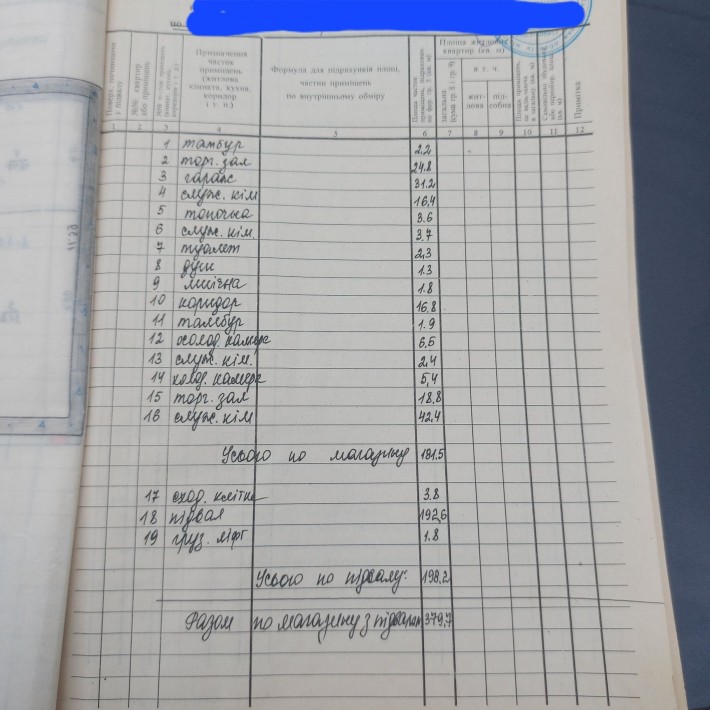 Поверх, починаючи з підвалу
№№ квартир або приміщень
Призначення часток приміщень (житлова кімната, кухня, коридор і т. п.)
Формула для підрахунків площ, частин приміщень по внутрішньому обміру
Площа житлових квартир (кв. м)
загальна (сума гр. 8 і гр. 9)
в т. ч.
житлова
підсобна
Примітка
1 2 3 4 5 6 7 8 9 10 11 12
1 тамбур 2.2
2 торг. зал 24.8
3 гараж 31.2
4 служ. кім 16,4
5 топочна 3.6
6 служ. кім. 3.7
7 туалет 2,3
8 душ 1.3
9 1.8
10 коридор 16,8
11 тамбур 1.9
12 холод. камера 6,5
13 служ. кім. 2,4
14 холод. камера 5,4
15 торг. зал 18,8
16 служ. кім 42,4
Усього по магазину 181.5
17 сход. клітка 3.8
18 підвал 192,6
19 груз. ліфт 1.8
Усього по підвалу: 198.2
Разом по магазину з підвалом 379,7